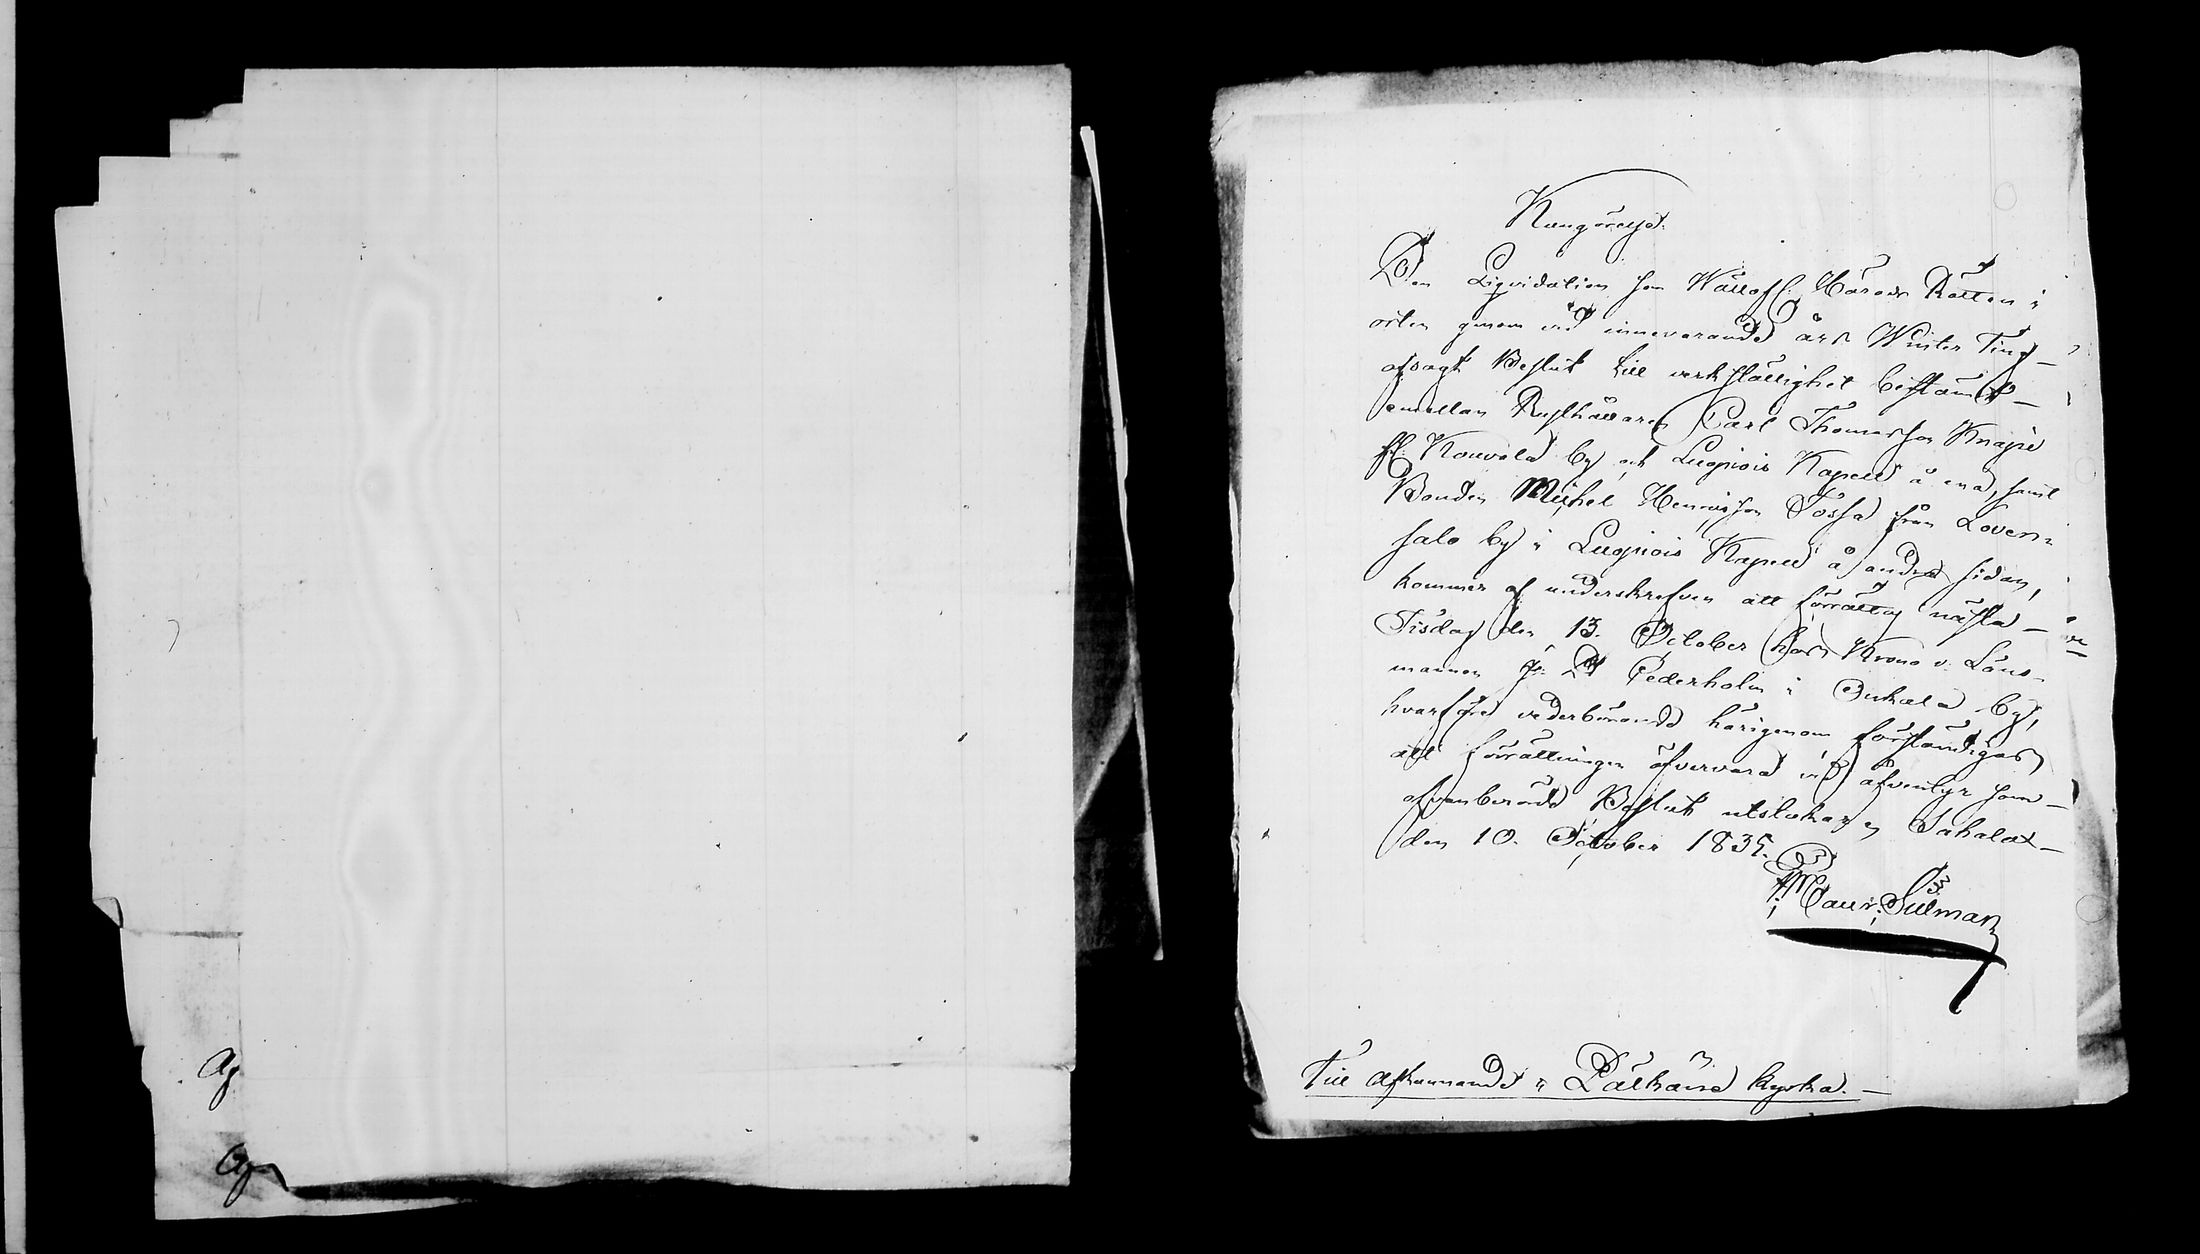 Kungörelse.
Den Liqvidation som Vällofl. Härads Rätten i
orten genom vid innevarande års Winter Ting
afsagt Beslut till verkställighet bestämt
emellan Rusthållaren Carl Thomasson Knape
fr. Kouvola by och Luopiois Kapell å ena, samt
Bonden Michel Henriksson Tössa från Loven-
salo by i Luopiois Kapell å andra sidan,
kommer af underskrefven att förrättas nästa
Tisdag den 13. October hos Krono v. Läns-
mannen Cederholm i Onkala by,
hvarföre vederbörande härigenom förständigas
att förrättningen öfvervara vid äfventyr som
ofvanberörde Beslut utstakar; Sahalax
den 10. October 1835.
Silman
Till afkunnande i Pälkäne kyrka.